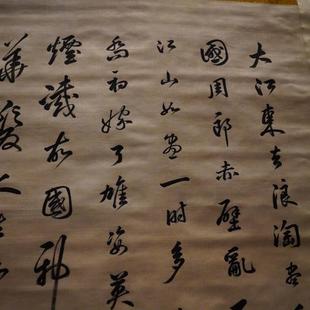 大江東去浪淘盡
國周郎赤壁亂
江山如畫一時多
喬初嫁了雄姿英
煙滅故國神
華髮人